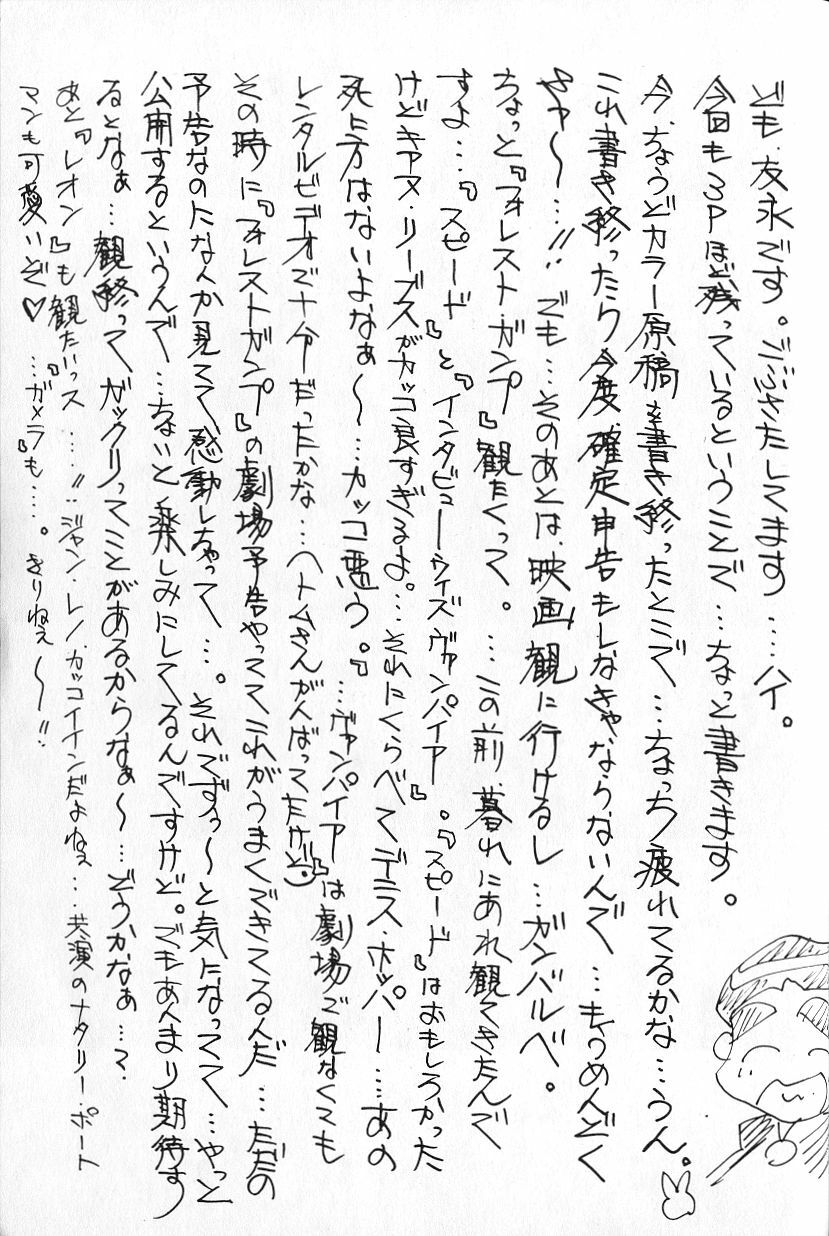 ども、友永です。ごぶさたしてます……ハイ。
今回も3Pほど残っているということで…ちょっと書きます。
今、ちょうどカラー原稿を書き終ったとこで…ちょっち疲れてるかな…うん。
これ書き終ったら今度、確定申告もしなきゃならないんで…もうめんどく
さァ〜…!! でも…そのあとは、映画観に行けるし…ガンバルベ。
ちょっと『フォレスト・ガンプ』観たくって。…この前、暮れにあれ観てきたんで
すよ…『スピード』と『インタビュー・ウィズ・ヴァンパイア』。『スピード』はおもしろかった
けどキアヌ・リーブスがカッコ良すぎるよ。…それにくらべてデニス・ホッパー……あの
死に方はないよなぁ〜…カッコ悪う。『…ヴァンパイア』は劇場で観なくても
レンタルビデオで十分だったかな…へトムさんがんばってたけど
その時に『フォレストガンプ』の劇場予告やっててこれがうまくできてるんだ…ただの
予告なのになんか見てて、感動しちゃって…。それでずぅ〜と気になってて…やっと
公開するというんで…ちょいと楽しみにしてるんですけど。でもあんまり期待す
るとなぁ…観終ってガックリってことがあるからなぁ〜…どうかなぁ…て.
あと『レオン』も観たいっス……!! ジャン・レノ、カッコイインだよねぇ…共演のナタリー・ポート
マンも可愛いぞ♡…『ガメラ』も……。きりねぇ〜!!